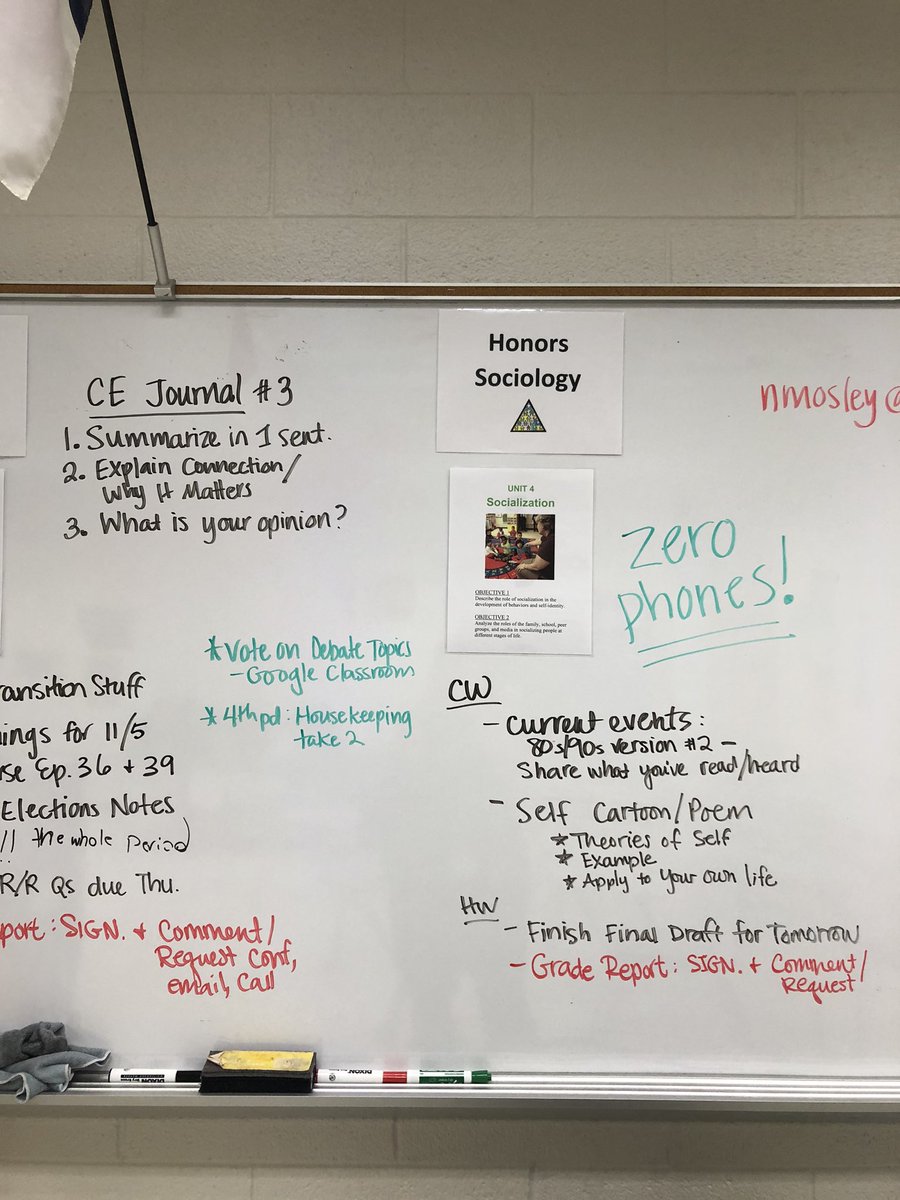 CE Journal #3
1. Summarize in 1 sent.
2. Explain Connection/
Why It Matters
3. What is your opinion?
*Vote on Debate Topics
- Google Classroom
*4th pd: Housekeeping
take 2
ransition Stuff
ings for 11/5
se Ep. 36 + 39
Elections Notes
// the whole period
R/R Qs due Thu.
port: SIGN. + Comment/
Request Conf,
email, Call
Honors
Sociology
UNIT 4
Socialization
OBJECTIVE 1
Describe the role of socialization in the
development of behaviors and self-identity.
OBJECTIVE 2
Analyze the roles of the family, school, peer
groups, and media in socializing people at
different stages of life.
nmosley@
zero
phones!
CW
- Current events:
80s/90s version #2 -
Share what you've read/heard
- Self Cartoon/Poem
* Theories of Self
* Example
* Apply to your own life
HW
- Finish Final Draft for Tomorrow
- Grade Report: SIGN. + Comment/
Request
DIXON
DIXON